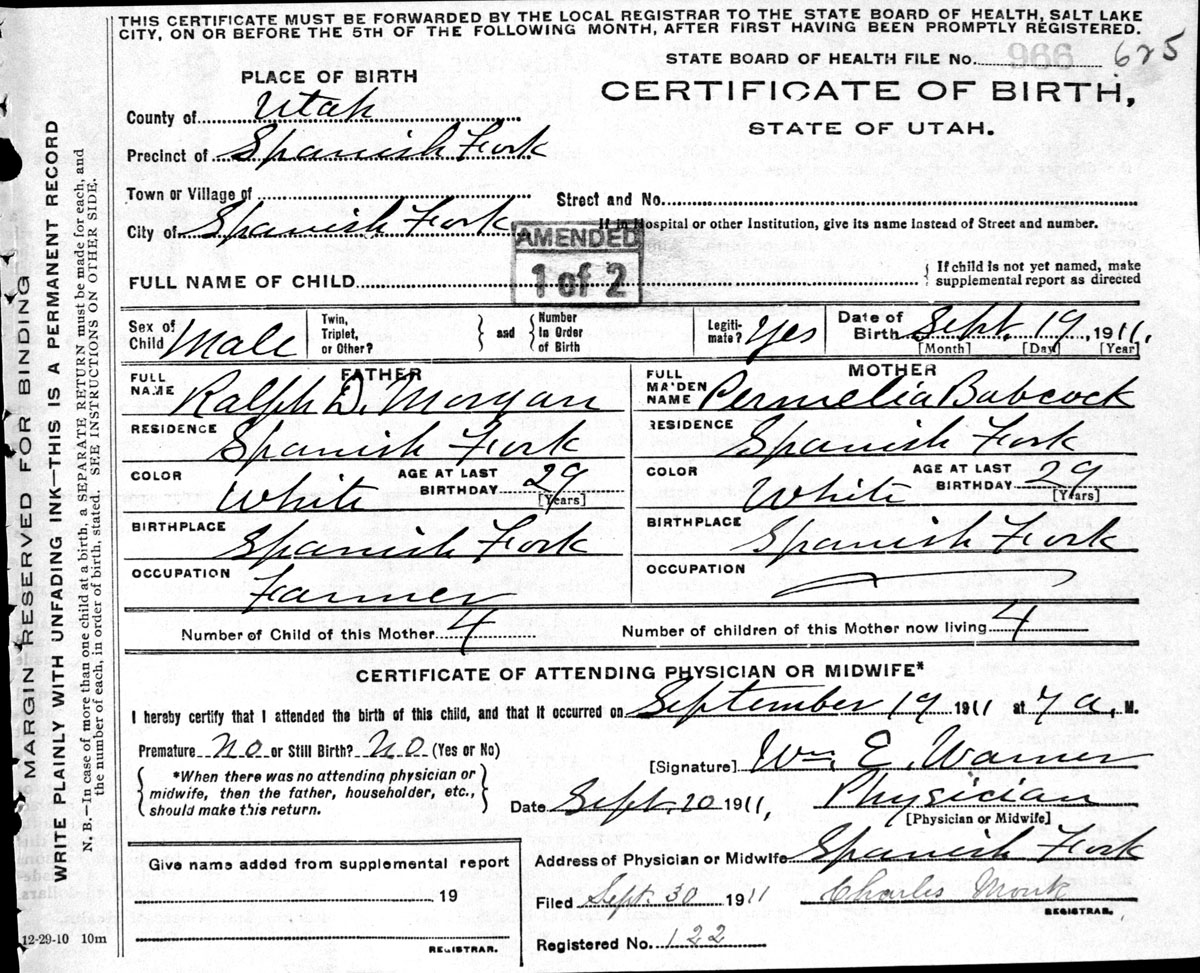 THIS CERTIFICATE MUST BE FORWARDED BY THE LOCAL REGISTRAR TO THE STATE BOARD OF HEALTH, SALT LAKE
CITY, ON OR BEFORE THE 5TH OF THE FOLLOWING MONTH, AFTER FIRST HAVING BEEN PROMPTLY REGISTERED.
STATE BOARD OF HEALTH FILE No. 966 625
PLACE OF BIRTH
CERTIFICATE OF BIRTH,
STATE OF UTAH.
County of Utah
Precinct of Spanish Fork
Town or Village of
Street and No.
City of Spanish Fork
If in Hospital or other Institution, give its name instead of Street and number.
AMENDED
1 of 2
FULL NAME OF CHILD
If child is not yet named, make
supplemental report as directed
Sex of Child Male
Twin, Triplet, or Other?
and
Number in Order of Birth
Legiti-mate? Yes
Date of Birth Sept. 19, 1911.
[Month] [Day] [Year]
FATHER
FULL NAME Ralph D. Morgan
RESIDENCE Spanish Fork
COLOR White AGE AT LAST BIRTHDAY 29
[Years]
BIRTHPLACE Spanish Fork
OCCUPATION Farmer
MOTHER
FULL MAIDEN NAME Permelia Babcock
RESIDENCE Spanish Fork
COLOR White AGE AT LAST BIRTHDAY 29
[Years]
BIRTHPLACE Spanish Fork
OCCUPATION
Number of Child of this Mother 4 Number of children of this Mother now living 4
CERTIFICATE OF ATTENDING PHYSICIAN OR MIDWIFE*
I hereby certify that I attended the birth of this child, and that it occurred on September 19 1911 at 7 a. M.
Premature No or Still Birth? No (Yes or No)
*When there was no attending physician or
midwife, then the father, householder, etc.,
should make this return.
[Signature] Wm. E. Warner
Date Sept. 20 1911, Physician
[Physician or Midwife]
Give name added from supplemental report
19
REGISTRAR.
Address of Physician or Midwife Spanish Fork
Filed Sept. 30 1911 Charles Monk
REGISTRAR.
Registered No. 122
12-29-10 10m
MARGIN RESERVED FOR BINDING
WRITE PLAINLY WITH UNFADING INK—THIS IS A PERMANENT RECORD
N. B.—In case of more than one child at a birth, a SEPARATE RETURN must be made for each, and
the number of each, in order of birth, stated. SEE INSTRUCTIONS ON OTHER SIDE.